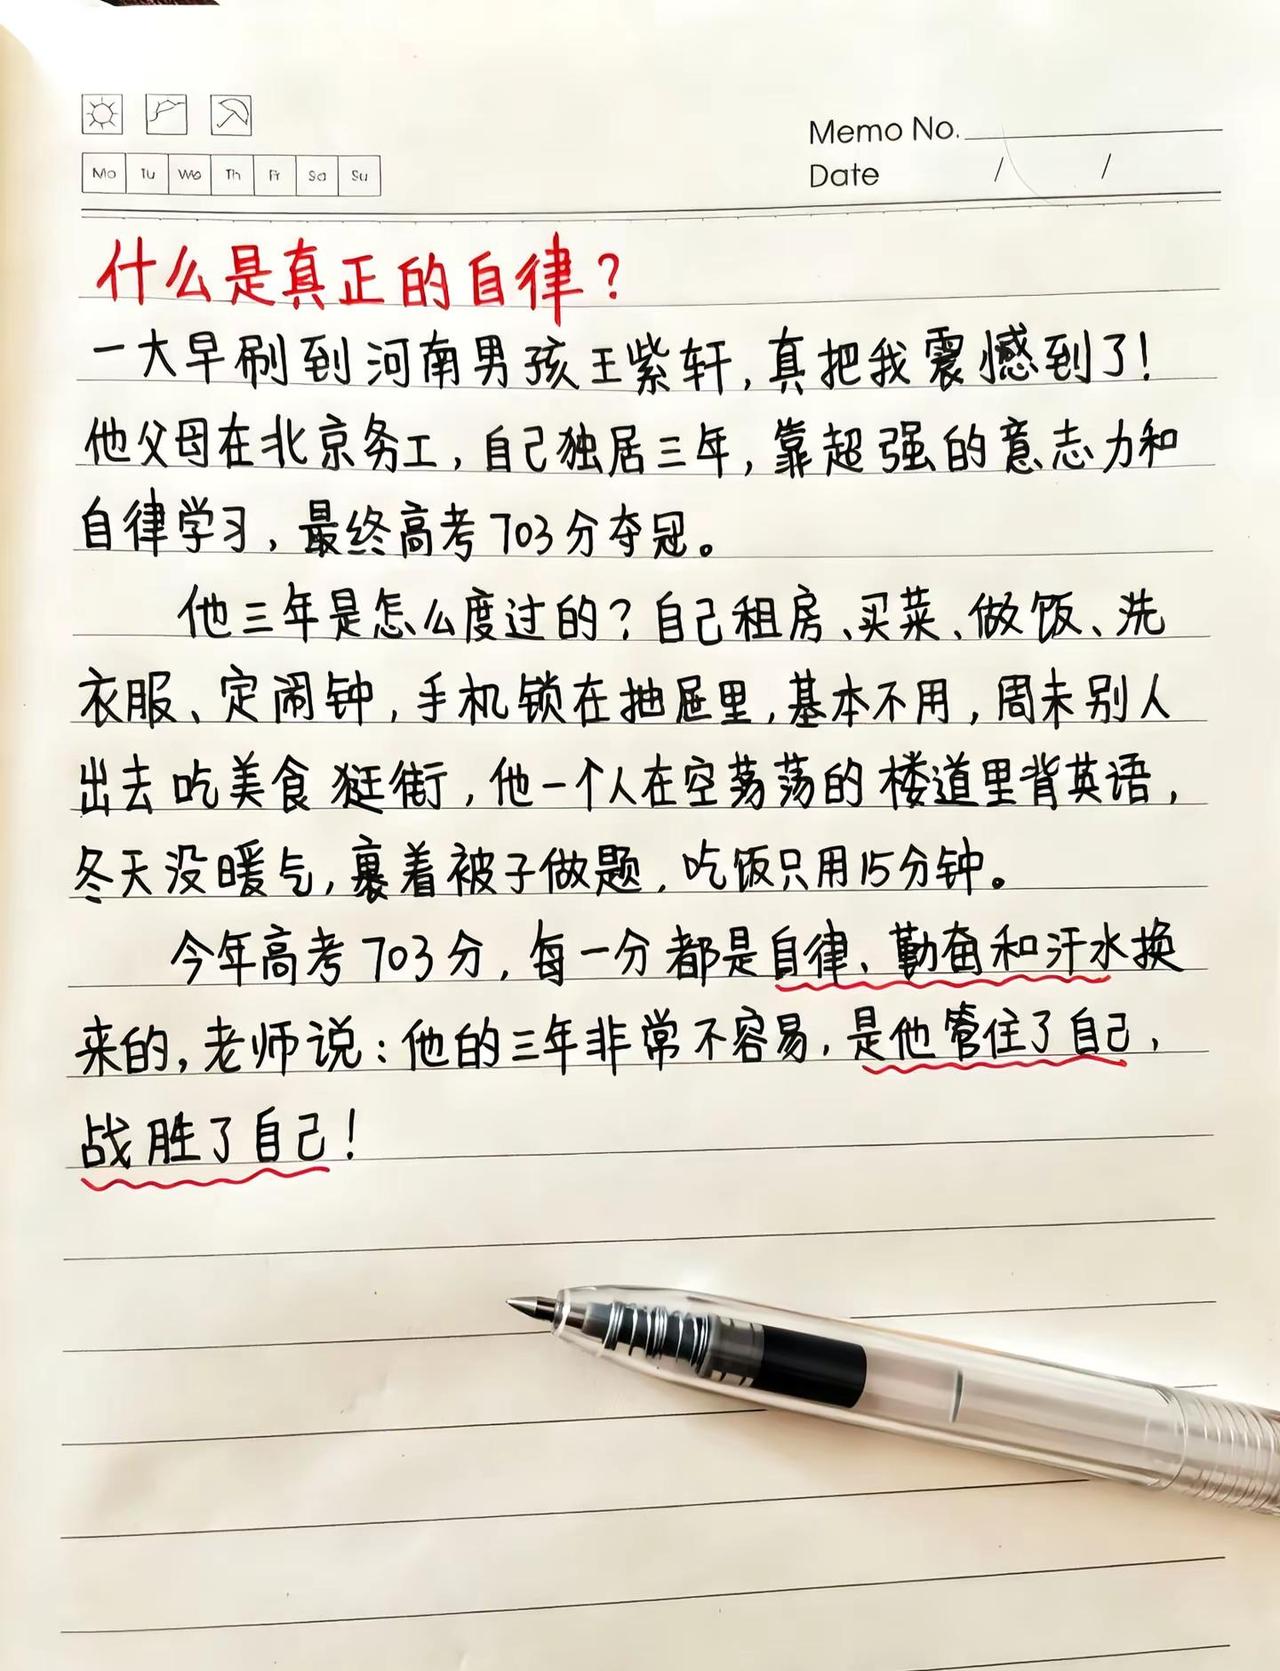 Memo No.
Mo Tu We Th Fr Sa Su
Date / /
什么是真正的自律？
一大早刷到河南男孩王紫轩，真把我震憾到了！
他父母在北京务工，自己独居三年，靠超强的意志力和
自律学习，最终高考703分夺冠。
他三年是怎么度过的？自己租房、买菜、做饭、洗
衣服、定闹钟，手机锁在抽屉里，基本不用，周末别人
出去吃美食逛街，他一个人在空荡荡的楼道里背英语，
冬天没暖气，裹着被子做题，吃饭只用15分钟。
今年高考703分，每一分都是自律、勤奋和汗水换
来的，老师说：他的三年非常不容易，是他管住了自己，
战胜了自己！